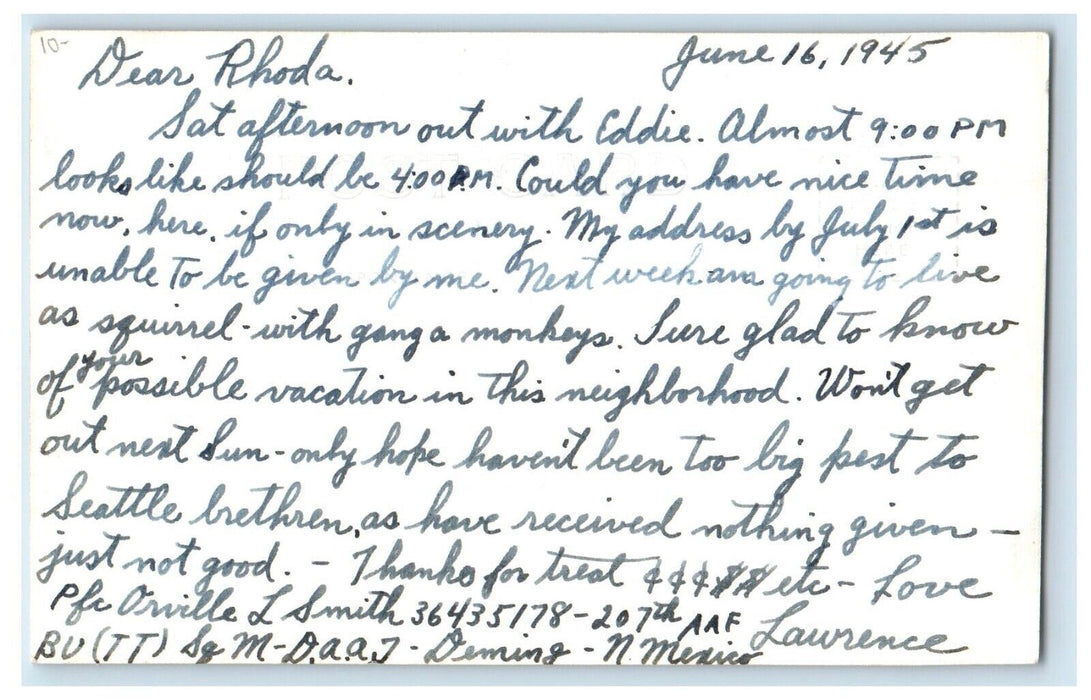 10-
Dear Rhoda. June 16, 1945
Sat afternoon out with Eddie. Almost 9:00 PM
looks like should be 4:00 P.M. Could you have nice time
now, here, if only in scenery. My address by July 1st is
unable to be given by me. Next week am going to live
as squirrel - with gang a monkeys. Sure glad to know
of your possible vacation in this neighborhood. Won't get
out next Sun - only hope haven't been too big pest to
Seattle brethren, as have received nothing given -
just not good. - Thanks for treat ¢¢¢$$ etc - Love
Pfc Orville L Smith 36435178 - 207th AAF Lawrence
BU (TT) Sq M - D.A.A.F - Deming - N. Mexico